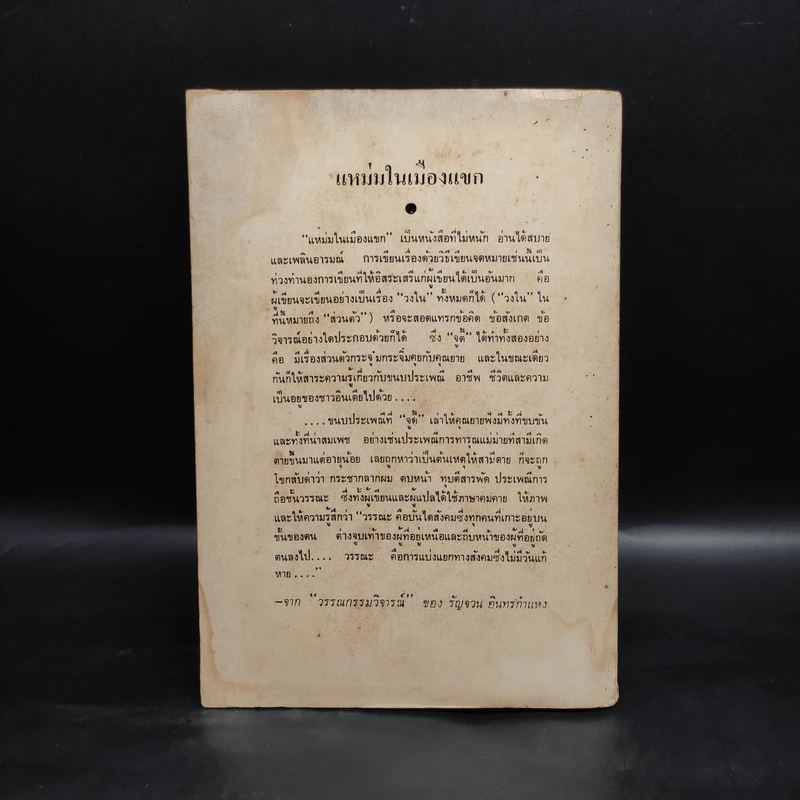 แหม่มในเมืองแขก
“แหม่มในเมืองแขก” เป็นหนังสือที่ไม่หนัก อ่านได้สบาย
และเพลินอารมณ์ การเขียนเรื่องด้วยวิธีเขียนจดหมายเช่นนี้เป็น
ท่วงทำนองการเขียนที่ให้อิสระเสรีแก่ผู้เขียนได้เป็นอันมาก คือ
ผู้เขียนจะเขียนอย่างเป็นเรื่อง “วงใน” ทั้งหมดก็ได้ (“วงใน” ใน
ที่นี้หมายถึง “ส่วนตัว”) หรือจะสอดแทรกข้อคิด ข้อสังเกต ข้อ
วิจารณ์อย่างใดประกอบด้วยก็ได้ ซึ่ง “จูดี้” ได้ทำทั้งสองอย่าง
คือ มีเรื่องส่วนตัวกระจุ๋มกระจิ๋มคุยกับคุณยาย และในขณะเดียว
กันก็ให้สาระความรู้เกี่ยวกับขนบประเพณี อาชีพ ชีวิตและความ
เป็นอยู่ของชาวอินเดียไปด้วย....
....ขนบประเพณีที่ “จูดี้” เล่าให้คุณยายฟังมีทั้งที่ขบขัน
และทั้งที่น่าสมเพช อย่างเช่นประเพณีการทารุณแม่ม่ายที่สามีเกิด
ตายขึ้นมาแต่อายุน้อย เลยถูกหาว่าเป็นต้นเหตุให้สามีตาย ก็จะถูก
โขกสับด่าว่า กระชากลากผม ตบหน้า ทุบตีสารพัด ประเพณีการ
ถือชั้นวรรณะ ซึ่งทั้งผู้เขียนและผู้แปลได้ใช้ภาษาคมคาย ให้ภาพ
และให้ความรู้สึกว่า “วรรณะ คือบันไดสังคมซึ่งทุกคนที่เกาะอยู่บน
ขั้นของตน ต่างจูบเท้าของผู้ที่อยู่เหนือและถีบหน้าของผู้ที่อยู่ถัด
ตนลงไป.... วรรณะ คือการแบ่งแยกทางสังคมซึ่งไม่มีวันแก้
หาย....”
—จาก “วรรณกรรมวิจารณ์” ของ รัญจวน อินทรกำแหง